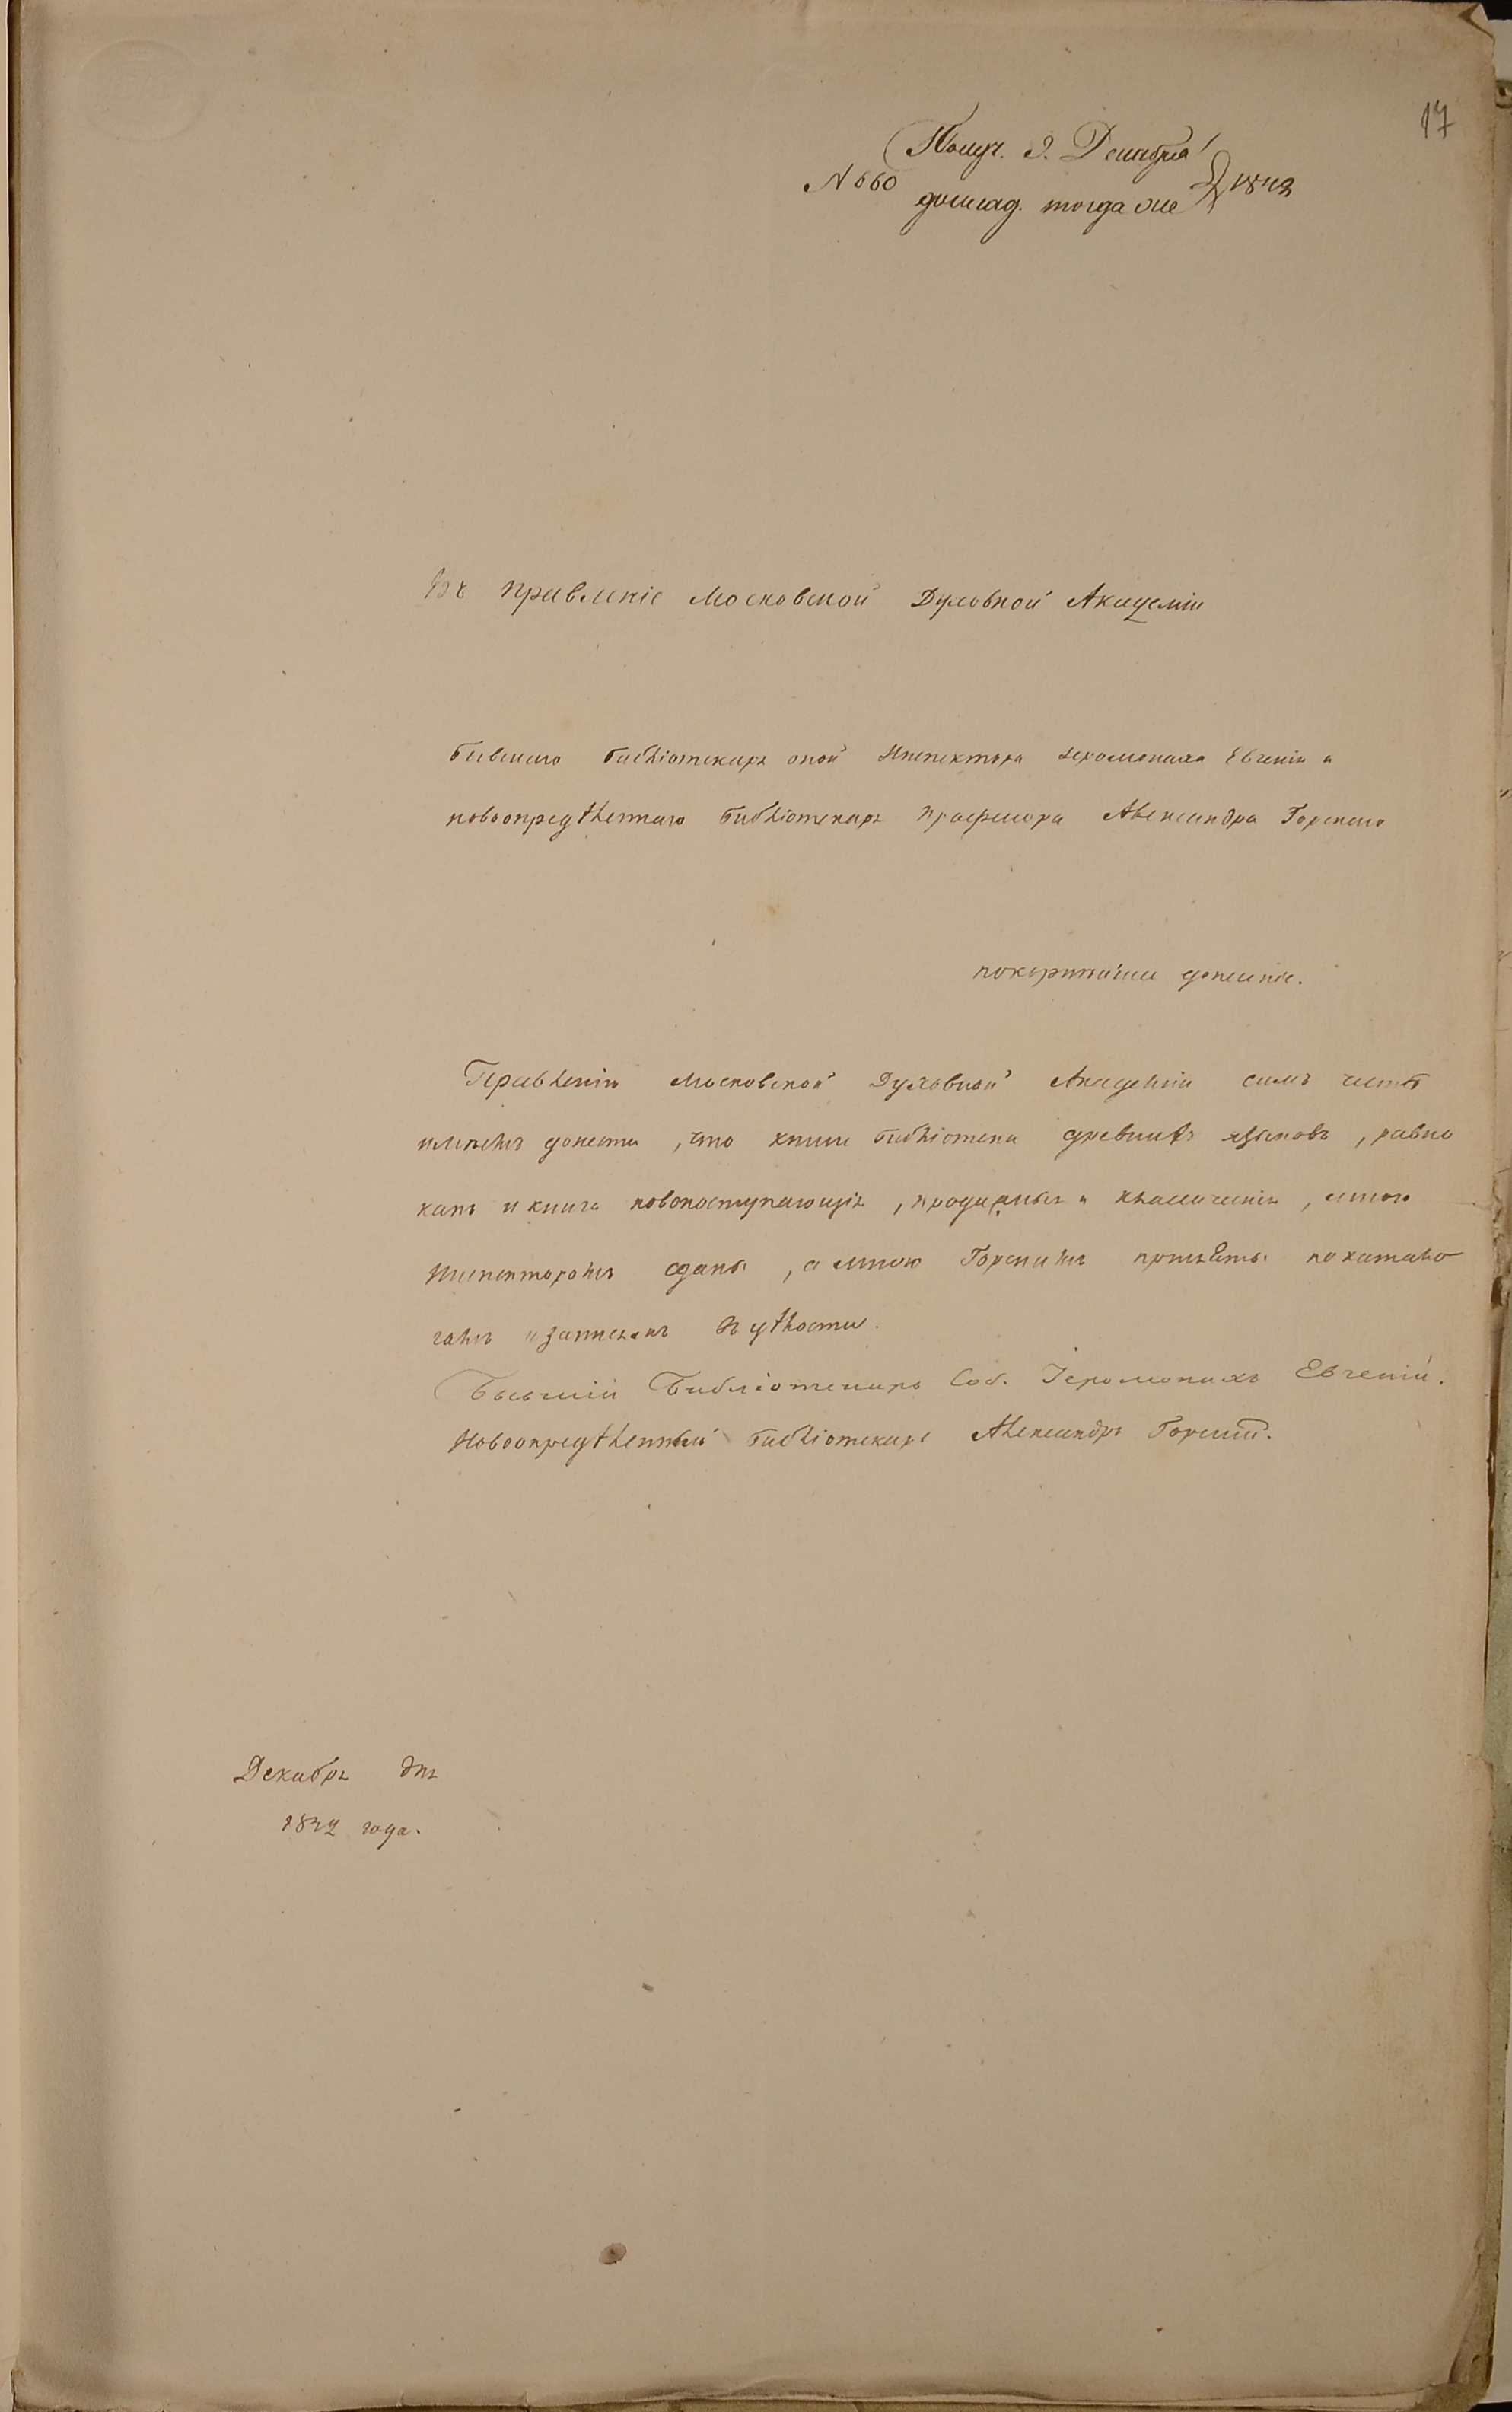 17
Получ. 2. Декабря
№ 660 1842
доклад. тогда же
Въ Правленіе Московской Духовной Академіи
бывшаго библіотекаря оной Инспектора Іеромонаха Евгенія и
новоопредѣленнаго библіотекаря Профессора Александра Горскаго
покорнѣйшее донесеніе.
Правленію Московской Духовной Академіи симъ честь
имѣемъ донести, что книги библіотеки древнихъ языковъ, равно
какъ и книги новопоступающія, продажныя и классическія, мною
Инспекторомъ сданы, а мною Горскимъ приняты по катало
гамъ и запискамъ въ цѣлости.
Бывшій Библіотекарь Соб. Іеромонахъ Евгеній.
Новоопредѣленный библіотекарь Александръ Горскій.
Декабря дня
1842 года.